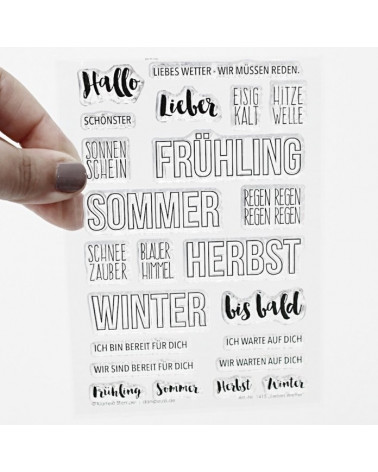 Hallo
LIEBES WETTER - WIR MÜSSEN REDEN.
SCHÖNSTER
Lieber
EISIG
KALT
HITZE
WELLE
SONNEN
SCHEIN
FRÜHLING
SOMMER
REGEN REGEN
REGEN REGEN
SCHNEE
ZAUBER
BLAUER
HIMMEL
HERBST
WINTER
bis bald
ICH BIN BEREIT FÜR DICH
ICH WARTE AUF DICH
WIR SIND BEREIT FÜR DICH
WIR WARTEN AUF DICH
Frühling
Sommer
Herbst
Winter